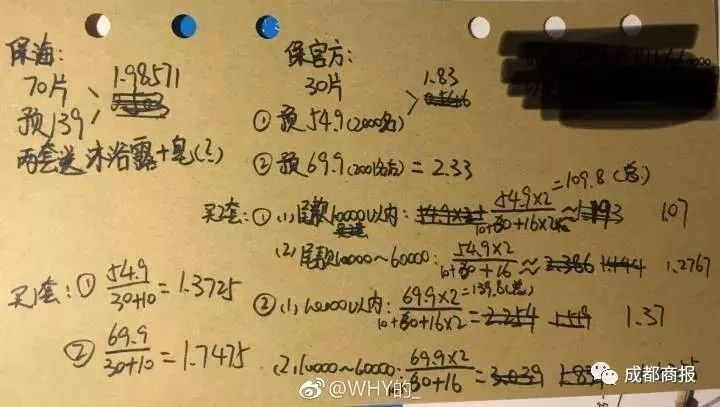 保海:
70片 1.98571
预139
两套送沐浴露+皂(?)
保官方:
30片 1.83
① 预54.9(2000名)
② 预69.9(2001名后) = 2.33
买2套: ① (1)尾款10000以内: 54.9×2 / 10+30+16×2 = 109.8(总) ≈ 1.07
(2)尾款10000~60000: 54.9×2 / 10+30+16 ≈ 1.2767
② (1)10000以内: 69.9×2 / 10+30+16×2 = 139.8(总) = 1.37
(2)10000~60000: 69.9×2 / 30+16 =
买1套: ① 54.9 / 30+10 = 1.3725
② 69.9 / 30+10 = 1.7475
@WHY的_
成都商报